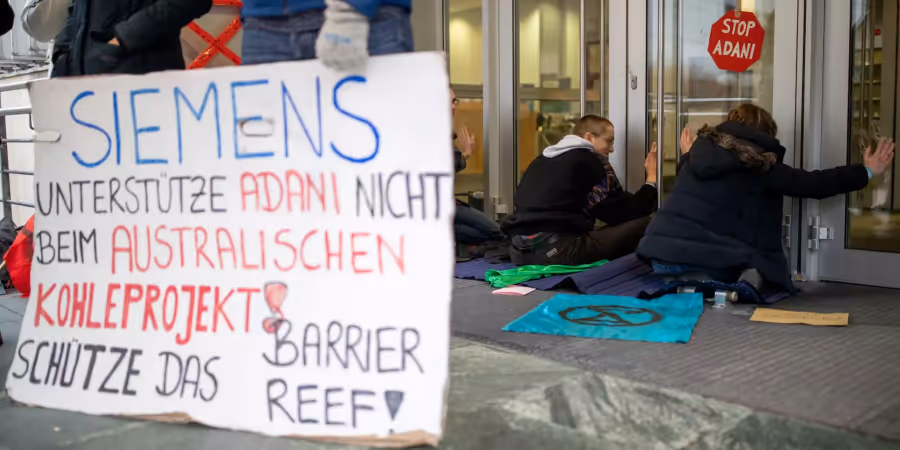 SIEMENS
UNTERSTÜTZE ADANI NICHT
BEIM AUSTRALISCHEN
KOHLEPROJEKT!
SCHÜTZE DAS BARRIER
REEF!
STOP
ADANI